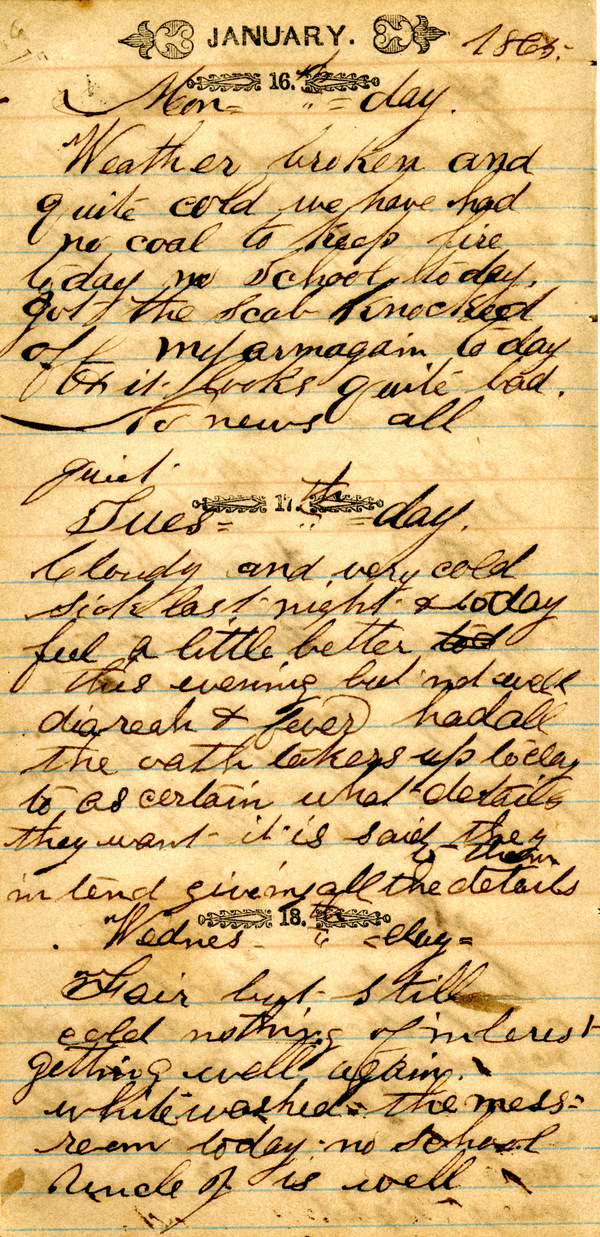 JANUARY. 1865.
16.th
Mon= " = day.
Weather broken and
quite cold we have had
no coal to keep fire
today no school today.
got the scab knocked
off my arm again today
& it looks quite bad.
No news all
quiet.
17.th
Tues= " = day.
Cloudy and very cold
sick last night & today
feel a little better tod
this evening but not well
diareah & fever had all
the oath takers up today
to ascertain what details
they want it is said they
to them
intend giving all the details
18.th
Wednes- " =day=
Fair but still
cold nothing of interest
getting well again.
whitewashed= the mess=
room today- no school
Uncle J is well